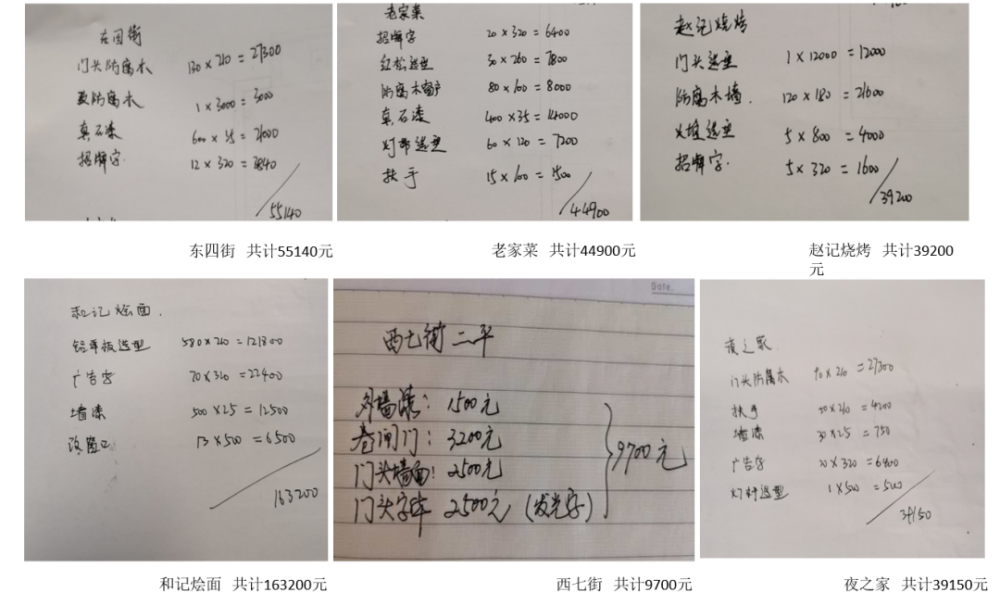 东四街
门头防腐木 130 × 210 = 27300
改防腐木 1 × 3000 = 3000
真石漆 600 × 35 = 21000
招牌字 12 × 320 = 3840
55140
东四街 共计55140元
老家菜
招牌字 20 × 320 = 6400
红松造型 30 × 260 = 7800
防腐木窗户 80 × 100 = 8000
真石漆 400 × 35 = 14000
灯带造型 60 × 120 = 7200
扶手 15 × 100 = 1500
44900
老家菜 共计44900元
赵记烧烤
门头造型 1 × 12000 = 12000
防腐木墙. 120 × 180 = 21600
造型 5 × 800 = 4000
招牌字. 5 × 320 = 1600
39200
赵记烧烤 共计39200
元
和记烩面.
铝单板造型 580 × 210 = 121800
广告字 70 × 320 = 22400
墙漆 500 × 25 = 12500
改窗口 13 × 500 = 6500
163200
和记烩面 共计163200元
Date.
西七街 二平
外墙漆: 1500元
卷闸门: 3200元
门头墙面: 2500元
门头字体 2500元 (发光字)
9700元
西七街 共计9700元
夜之家.
门头防腐木 × 210 = 27300
扶手 × 210 = 4200
墙漆 30 × 25 = 750
广告字 20 × 320 = 6400
灯杆造型 1 × 500 = 500
39150
夜之家 共计39150元